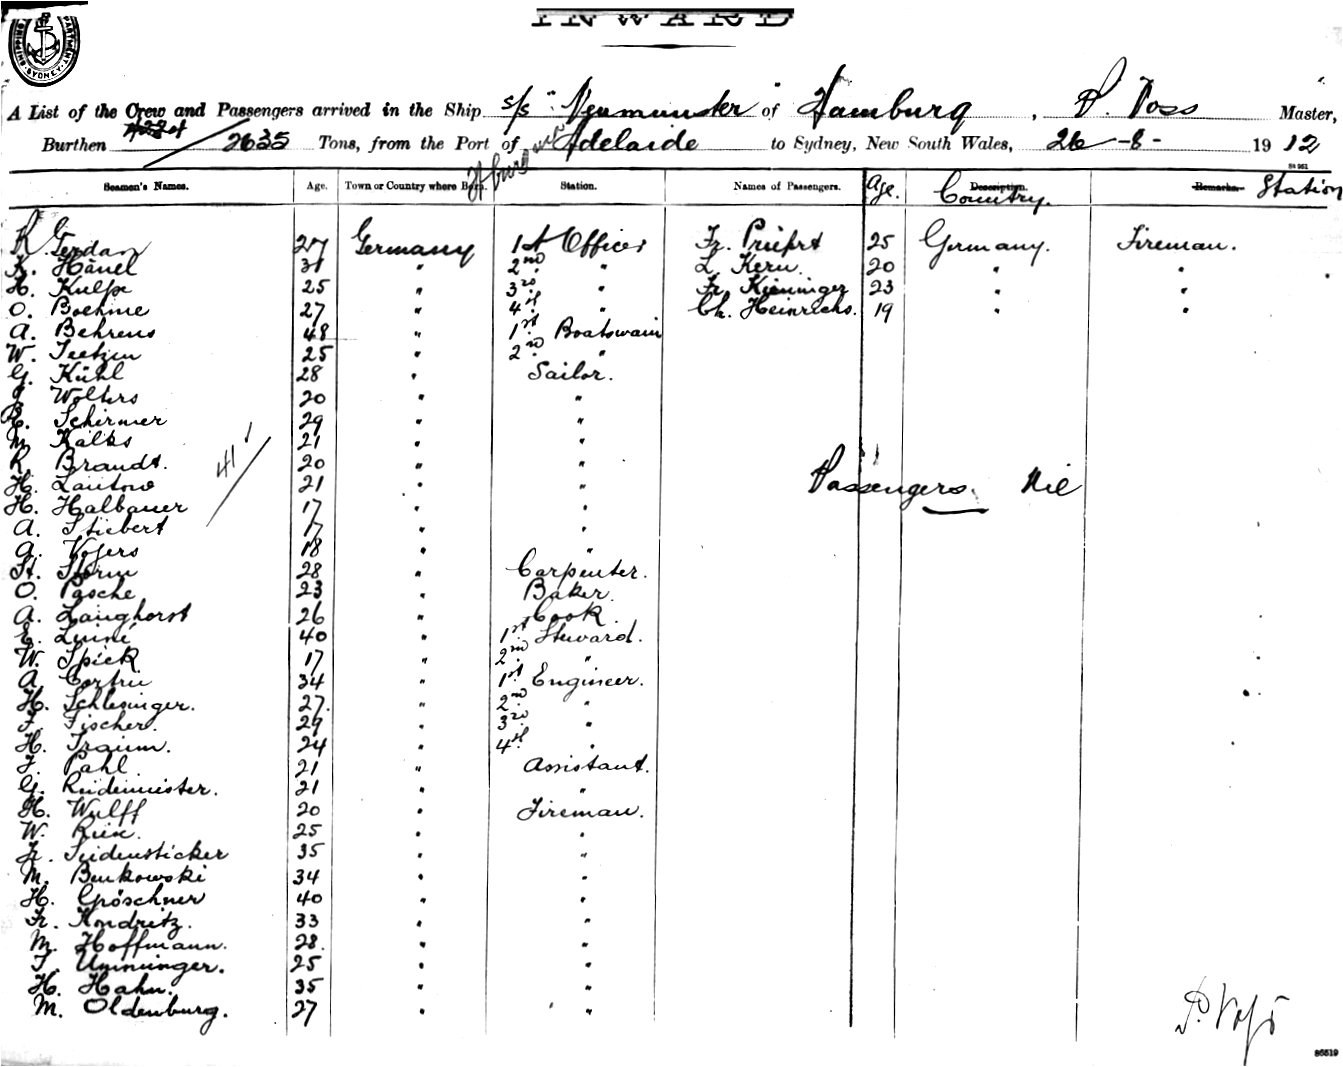 INWARD
SHIPPING DEPARTMENT SYDNEY
A List of the Crew and Passengers arrived in the Ship s/s "Neumunster" of Hamburg, P. Voss Master,
Burthen 2635 Tons, from the Port of Adelaide to Sydney, New South Wales, 26-8-1912
Seamen's Names. Age. Town or Country where Born. Station. Names of Passengers. Age. Description. Country. Remarks. Station
K. Gerdan 27 Germany 1st Officer Fr. Priefrt 25 Germany. Fireman.
K. Hänel 31 " 2nd " L. Kern. 20 " "
H. Kulpe 25 " 3rd " Fr. Kieninger 23 " "
O. Boehme 27 " 4th " Ch. Heinrichs. 19 " "
A. Behrens 48 " 1st Boatswain
W. Teetzen 25 " 2nd "
G. Kühl 28 " Sailor.
J. Wolters 20 " "
E. Schirmer 29 " "
M. Kalks 21 " "
R. Brandt. 20 " "
H. Lautow 21 " "
41
Passengers. Nil
H. Halbauer 17 " "
A. Stiebert 17 " "
A. Vogers 18 " "
St. Storm 28 " Carpenter.
O. Pasche 23 " Baker.
A. Langhorst 26 " Cook.
E. 40 " 1st Steward.
W. Spick 17 " 2nd "
A. Cortrie 34 " 1st Engineer.
H. Schlesinger. 27. " 2nd "
F. Fischer. 29 " 3rd "
H. Traum. 24 " 4th "
F. Pahl 21 " Assistant.
G. Reidemeister. 21 " "
H. Wulff 20 " Fireman.
W. 25 " "
Fr. Seidensticker 35 " "
M. Benkowski 34 " "
H. Gröschner 40 " "
Fr. Kondritz. 33 " "
M. Hoffmann. 28. " "
T. Umminger. 25 " "
H. Hahn. 35 " "
M. Oldenburg. 27 " "
P. Voss
86519